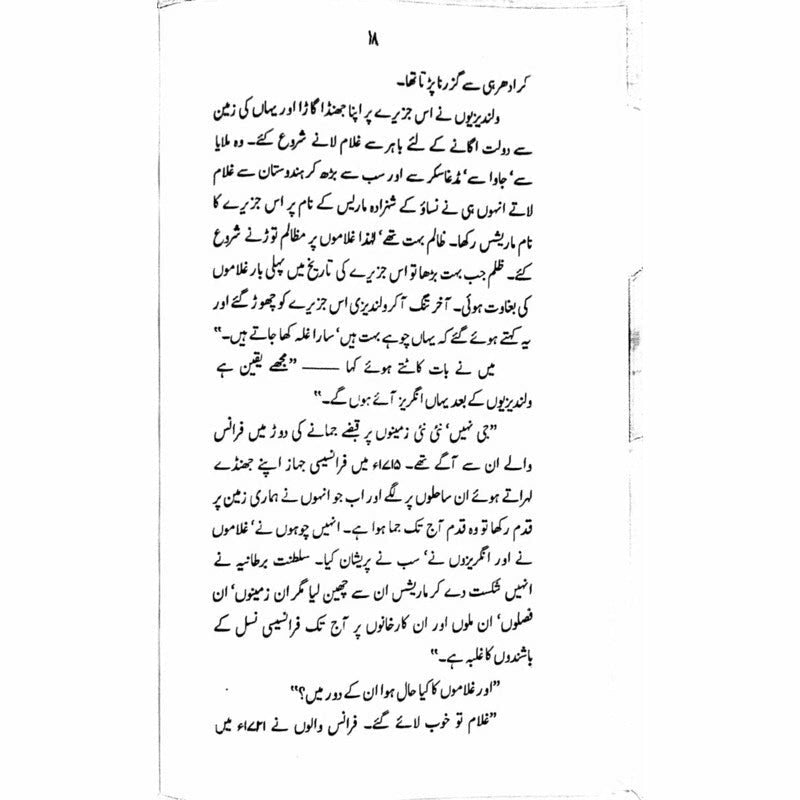 ۱۸
کر ادھر ہی سے گزرنا پڑتا تھا۔
ولندیزیوں نے اس جزیرے پر اپنا جھنڈا گاڑا اور یہاں کی زمین
سے دولت اگانے کے لئے باہر سے غلام لانے شروع کئے۔ وہ ملایا
سے‘ جاوا سے‘ مڈغاسکر سے اور سب سے بڑھ کر ہندوستان سے غلام
لاتے انہوں ہی نے نساؤ کے شہزادہ ماریس کے نام پر اس جزیرے کا
نام ماریشس رکھا۔ ظالم بہت تھے‘ لہٰذا غلاموں پر مظالم توڑنے شروع
کئے۔ ظلم جب بہت بڑھا تو اس جزیرے کی تاریخ میں پہلی بار غلاموں
کی بغاوت ہوئی۔ آخر تنگ آکر ولندیزی اس جزیرے کو چھوڑ گئے اور
یہ کہتے ہوئے گئے کہ یہاں چوہے بہت ہیں‘ سارا غلہ کھا جاتے ہیں۔"
میں نے بات کاٹتے ہوئے کہا —— "مجھے یقین ہے
ولندیزیوں کے بعد یہاں انگریز آئے ہوں گے۔"
"جی نہیں‘ نئی نئی زمینوں پر قبضے جمانے کی دوڑ میں فرانس
والے ان سے آگے تھے۔ ۱۷۱۵ء میں فرانسیسی جہاز اپنے جھنڈے
لہراتے ہوئے ان ساحلوں پر لگے اور اب جو انہوں نے ہماری زمین پر
قدم رکھا تو وہ قدم آج تک جما ہوا ہے۔ انہیں چوہوں نے‘ غلاموں
نے اور انگریزوں نے‘ سب نے پریشان کیا۔ سلطنت برطانیہ نے
انہیں شکست دے کر ماریشس ان سے چھین لیا مگر ان زمینوں‘ ان
فصلوں‘ ان ملوں اور ان کارخانوں پر آج تک فرانسیسی نسل کے
باشندوں کا غلبہ ہے۔"
"اور غلاموں کا کیا حال ہوا ان کے دور میں؟"
"غلام تو خوب لائے گئے۔ فرانس والوں نے ۱۷۲۱ء میں